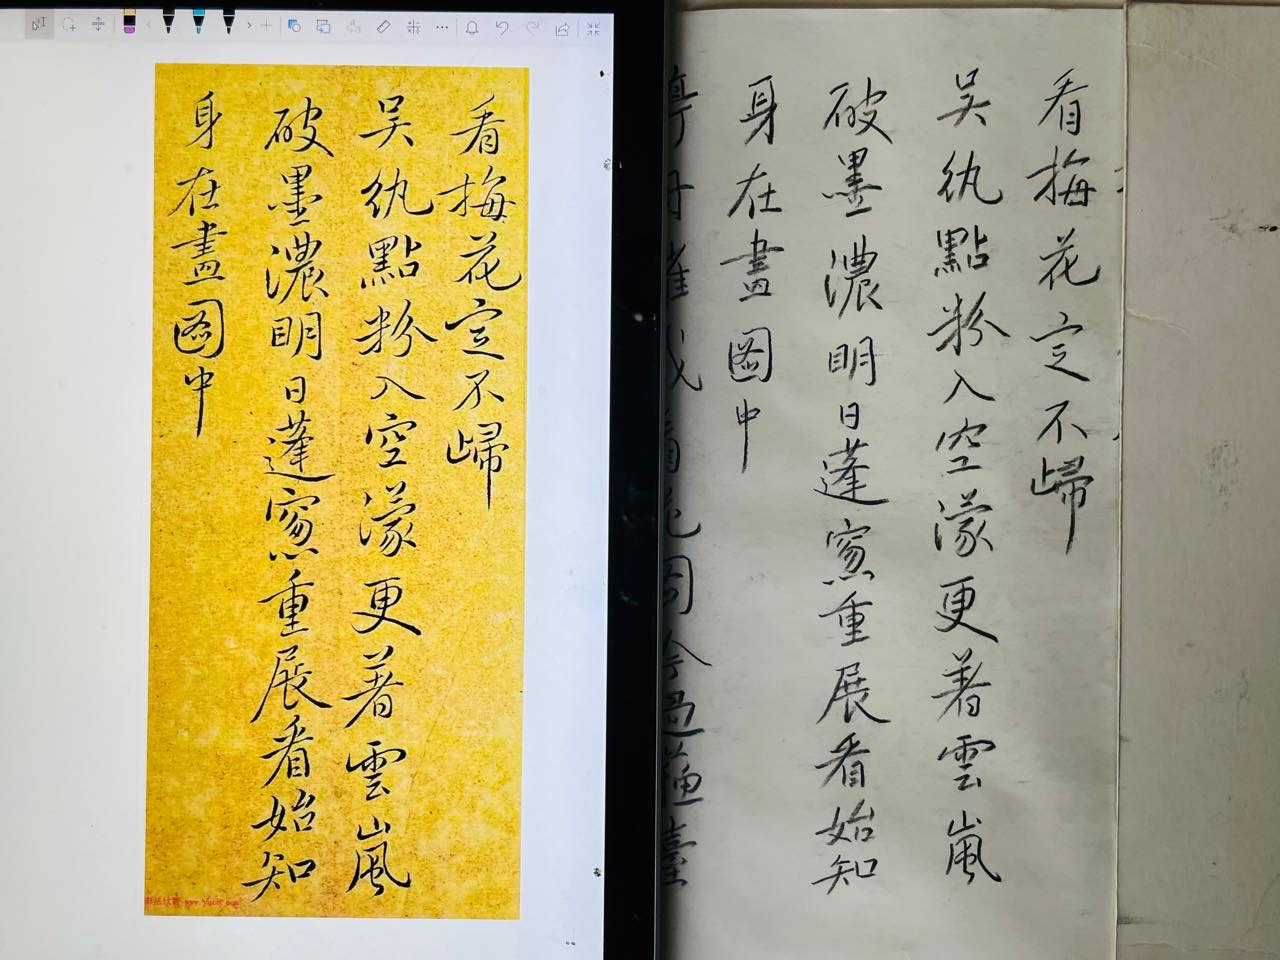 看梅花定不歸
吳紈點粉入空濛更著雲嵐
破墨濃明日蓬窻重展看始知
身在畫圖中
看梅花定不歸
吳紈點粉入空濛更著雲嵐
破墨濃明日蓬窻重展看始知
身在畫圖中